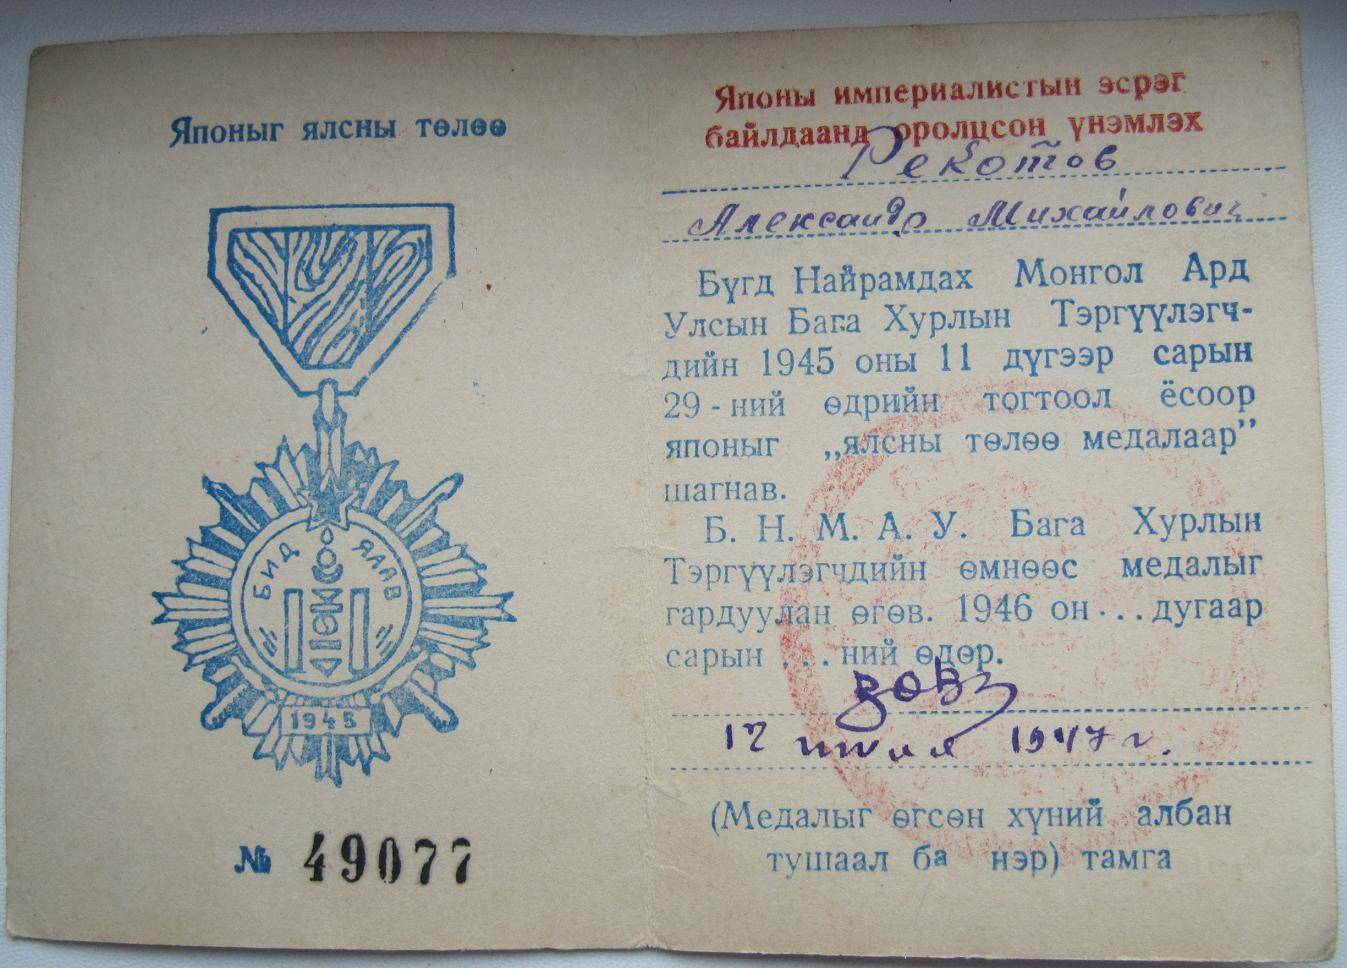 Японыг ялсны төлөө
БИД ЯЛАВ
1945
№ 49077
Японы империалистын эсрэг
байлдаанд оролцсон үнэмлэх
Рекотов
Александр Михайлович
Бүгд Найрамдах Монгол Ард
Улсын Бага Хурлын Тэргүүлэгч-
дийн 1945 оны 11 дүгээр сарын
29-ний өдрийн тогтоол ёсоор
японыг „ялсны төлөө медалаар”
шагнав.
Б. Н. М. А. У. Бага Хурлын
Тэргүүлэгчдийн өмнөөс медалыг
гардуулан өгөв. 1946 он ... дугаар
сарын ... ний өдөр.
12 июля 1947 г.
(Медалыг өгсөн хүний албан
тушаал ба нэр) тамга